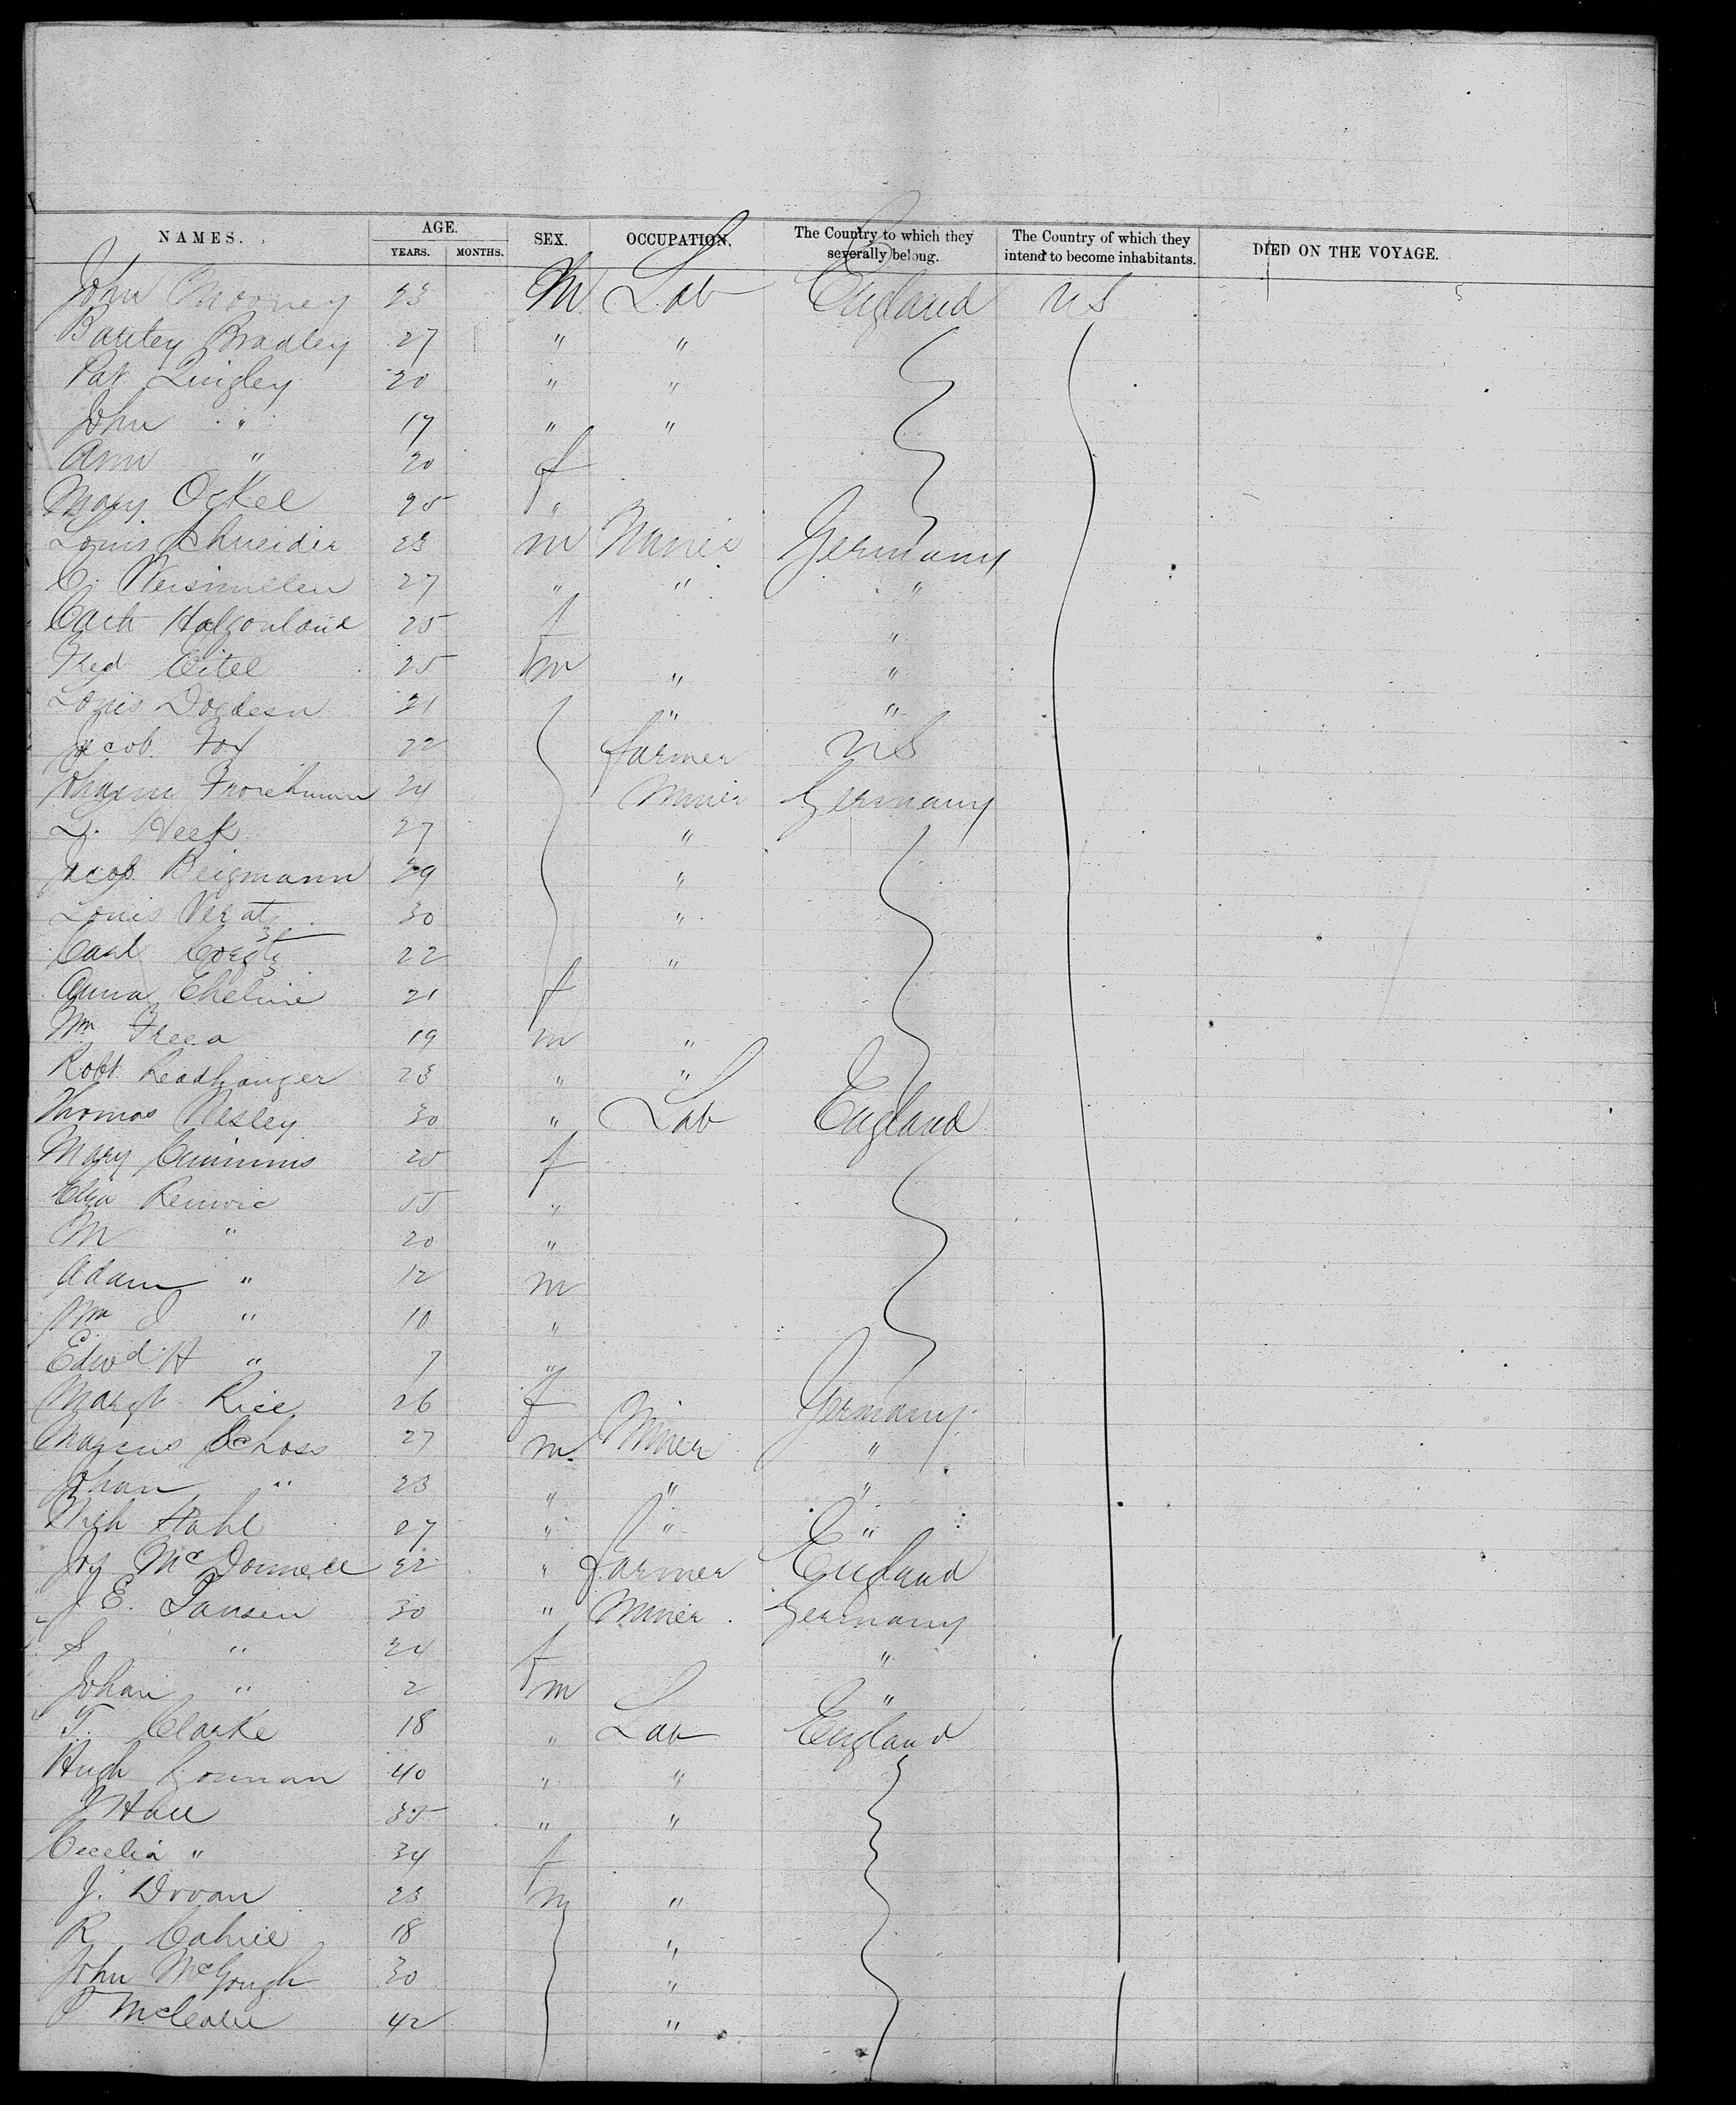 NAMES. AGE. SEX. OCCUPATION. The Country to which they severally belong. The Country of which they intend to become inhabitants. DIED ON THE VOYAGE.
YEARS. MONTHS.
John Mooney 23 M Lab England US
Bradley 27 " "
Pat Lingley 20 " "
John " 17 " "
Ann " 20 f
Mary 25 "
Louis Schneider 23 m Miner Germany
C. 27 " " "
Cath 25 f "
Fred Eitel 25 m " "
Louis 21 " "
Jacob Fox 22 farmer US
24 Miner Germany
L. Heek 27 "
Jacob Beigmann 29 "
Louis 30 "
Carl 22 "
Anna 21 f
Wm 19 m "
Robt 23 " "
Thomas Nesley 30 " Lab England
Mary Cummins 25 f
Eliza Renwic 55 "
M " 20 "
Adam " 12 m
Wm J " 10 "
Edwd H " 7 "
Margt Rice 26 f Germany
Marcus Schoss 27 m. Miner "
Johan " 23 " " "
Stahl 27 " " "
Jos McDonnell 22 " farmer England
J E. Jansen 30 " Miner Germany
S " 24 f "
Johan " 2 m "
T. Clarke 18 " Lab England
Hugh Gorman 40 " "
J Hall 35 " "
Cecelia " 34 f
J. Dovan 23 m "
R 18 "
John McGough 30 "
42 "